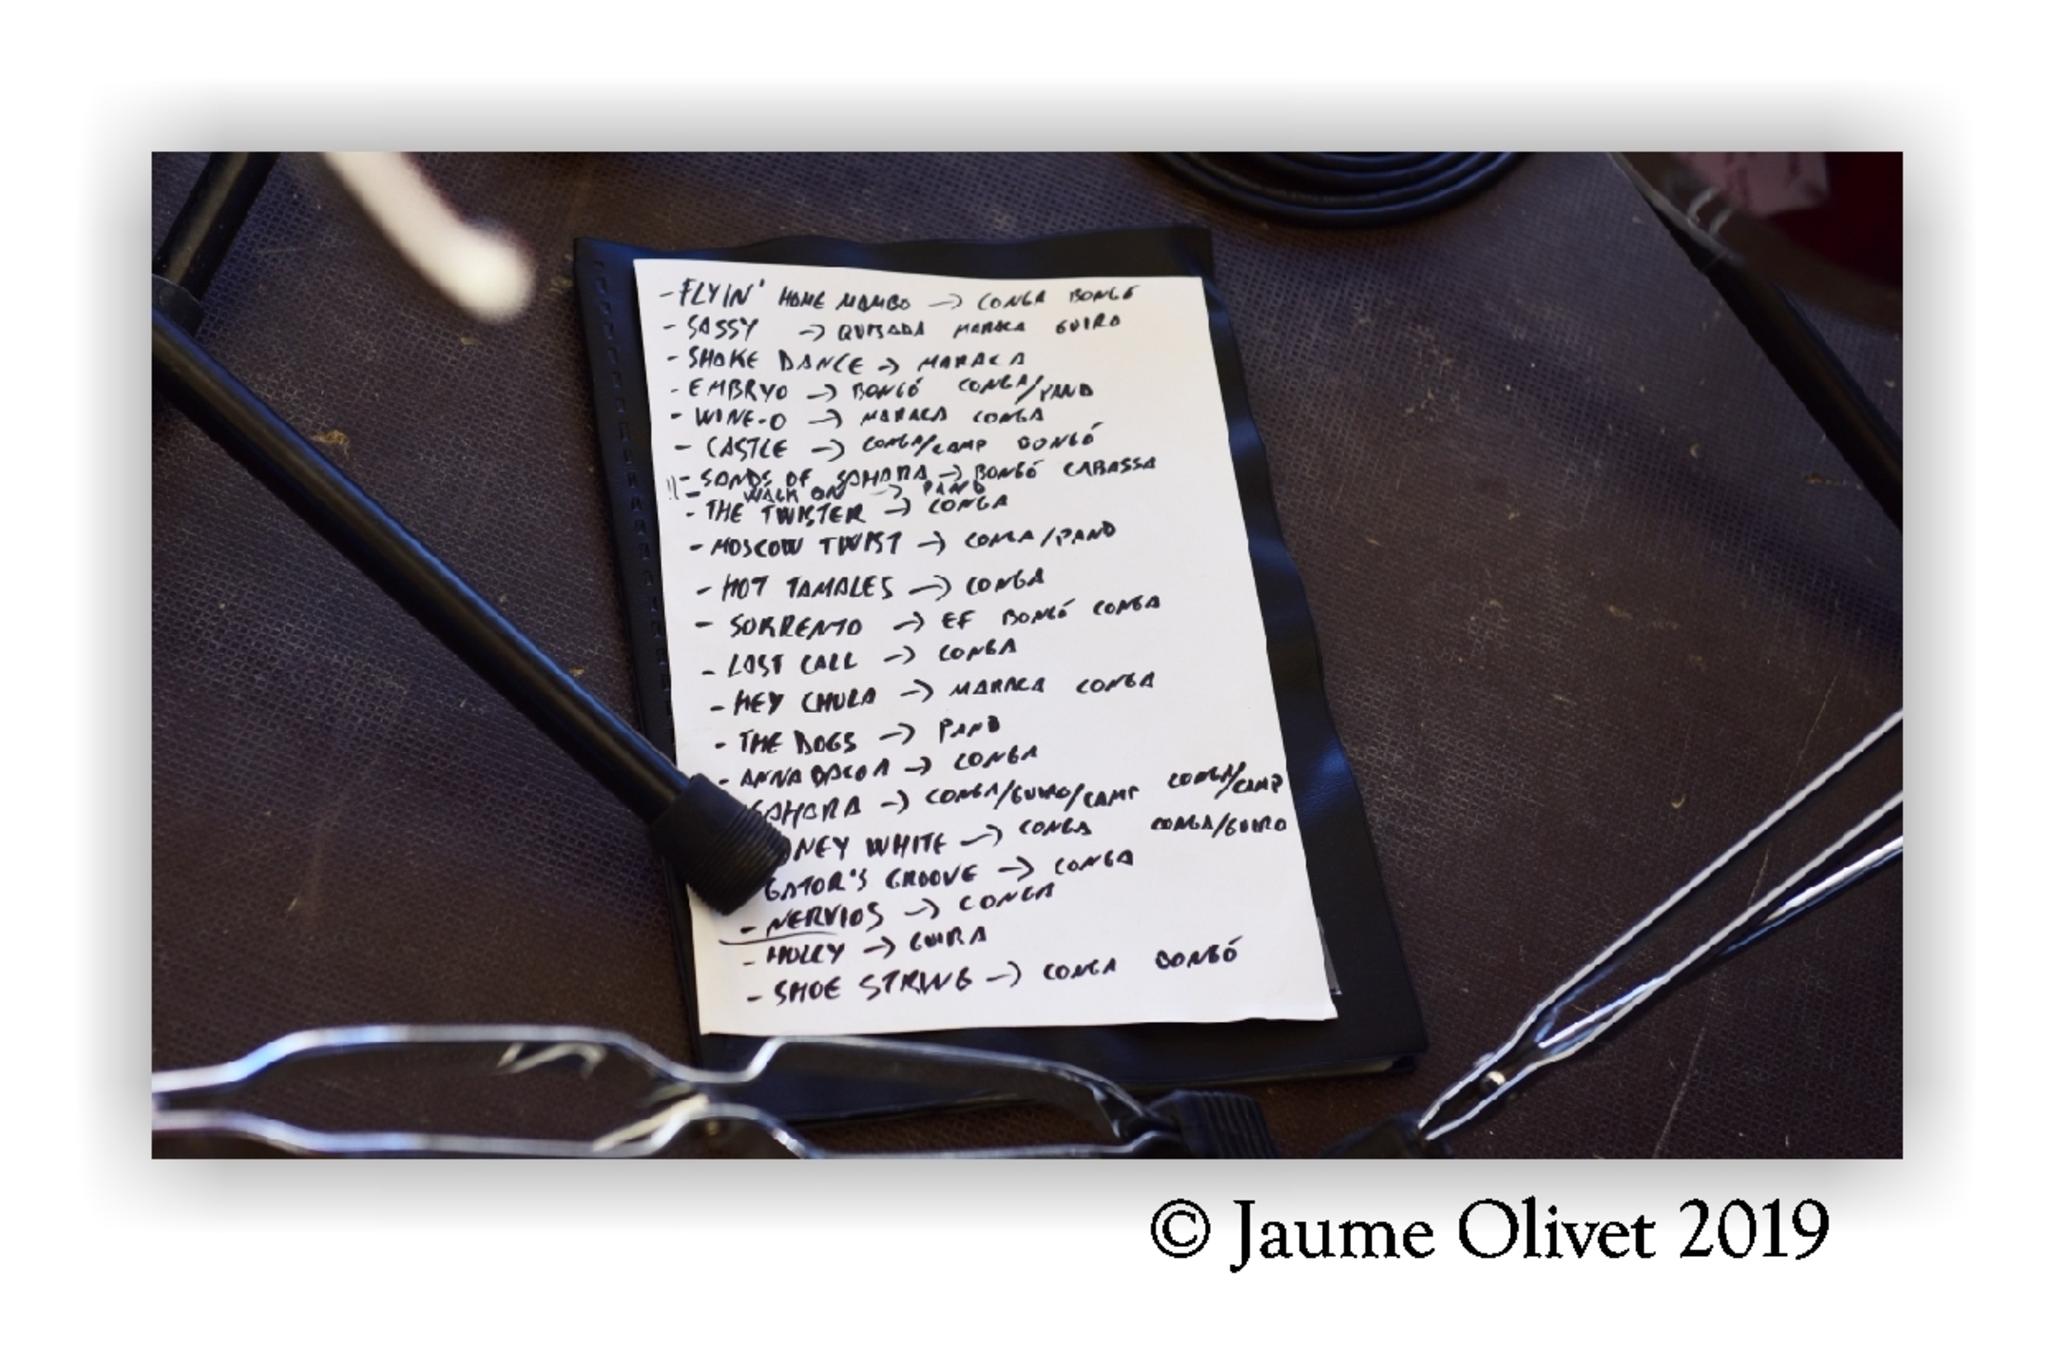 - FLYIN' HOME MAMBO → CONGA BONGÓ
- SASSY → QUIJADA MARACA GUIRO
- SHAKE DANCE → MARACA
- EMBRYO → BONGÓ CONGA/PAND
- WINE-O → MARACA CONGA
- CASTLE → CONGA/CAMP BONGÓ
- SANDS OF SAHARA → BONGÓ CABASSA
!! - WALK ON → PAND
- THE TWISTER → CONGA
- MOSCOW TWIST → CONGA/PAND
- HOT TAMALES → CONGA
- SORRENTO → EF BONGÓ CONGA
- LAST CALL → CONGA
- HEY CHULA → MARACA CONGA
- THE DOGS → PAND
- ANNABACOA → CONGA
SAHARA → CONGA/GUIRO/CAMP CONGA/CAMP
NEY WHITE → CONGA CONGA/GUIRO
GATOR'S GROOVE → CONGA
- NERVIOS → CONGA
- HOLLY → GUIRA
- SHOE STRING → CONGA BONGÓ
© Jaume Olivet 2019